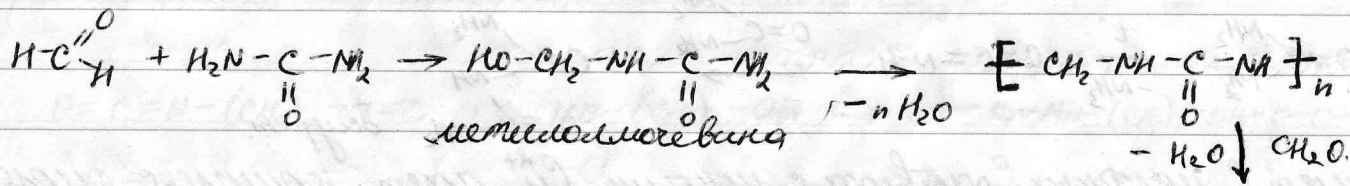 H-C(=O)-H + H₂N-C(=O)-NH₂ → HO-CH₂-NH-C(=O)-NH₂ → -nH₂O [CH₂-NH-C(=O)-NH]n
метилолмочевина
-H₂O ↓ CH₂O.